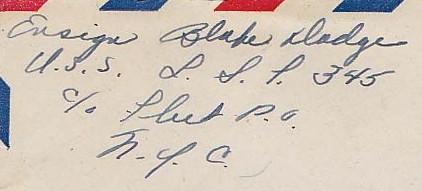 Ensign Blake Dodge
U.S.S. L.S.T. 345
c/o Fleet P.O.
N.Y.C.